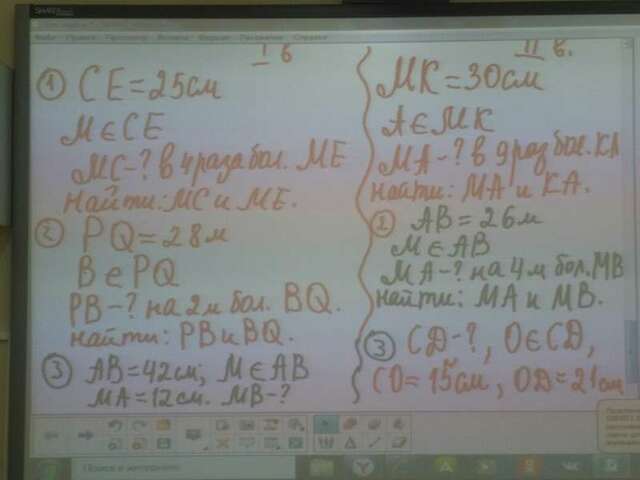 I в
① CE = 25 см
M ∈ CE
MC - ? в 4 раза бол. ME
найти: MC и ME.
② PQ = 28 м
B ∈ PQ
PB - ? на 2 м бол. BQ.
найти: PB и BQ.
③ AB = 42 см; M ∈ AB
MA = 12 см. MB - ?
II в.
MK = 30 см
A ∈ MK
MA - ? в 9 раз бол. KA
найти: MA и KA.
② AB = 26 м
M ∈ AB
MA - ? на 4 м бол. MB
найти: MA и MB.
③ CD - ?, O ∈ CD,
CO = 15 см, OD = 21 см
Поиск в интернете